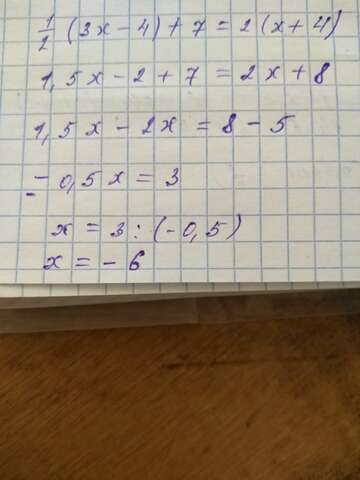 1/2 (3x - 4) + 7 = 2(x + 4)
1,5x - 2 + 7 = 2x + 8
1,5x - 2x = 8 - 5
- 0,5x = 3
x = 3 : (-0,5)
x = - 6